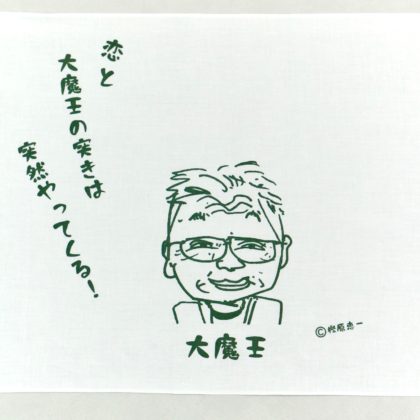 恋と
大魔王の突きは
突然やってくる!
大魔王